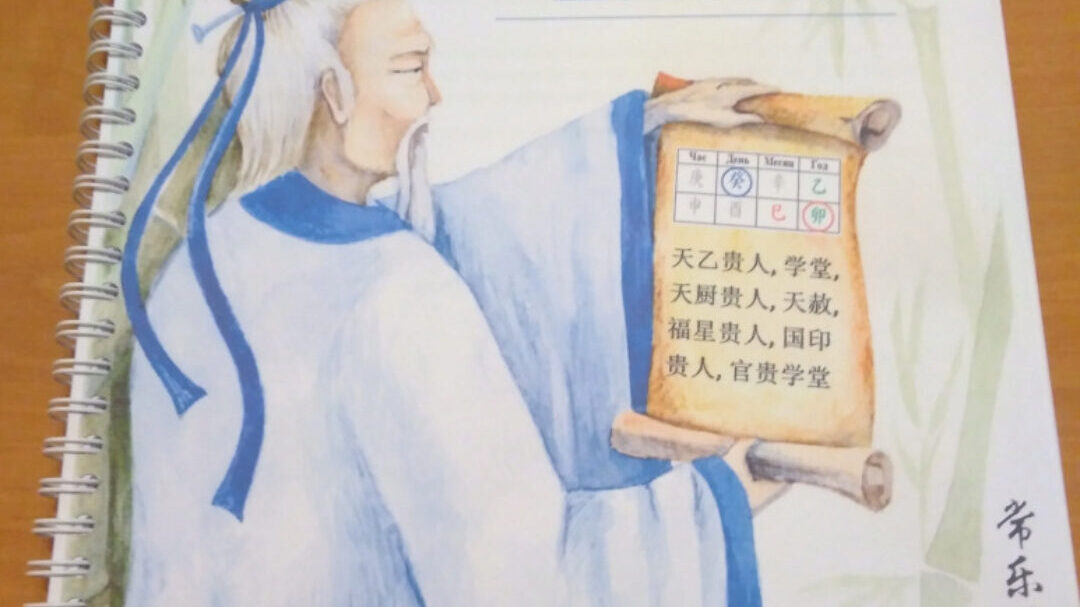 Час День Месяц Год
庚 癸 辛 乙
申 酉 巳 卯
天乙贵人, 学堂,
天厨贵人, 天赦,
福星贵人, 国印
贵人, 官贵学堂
常乐